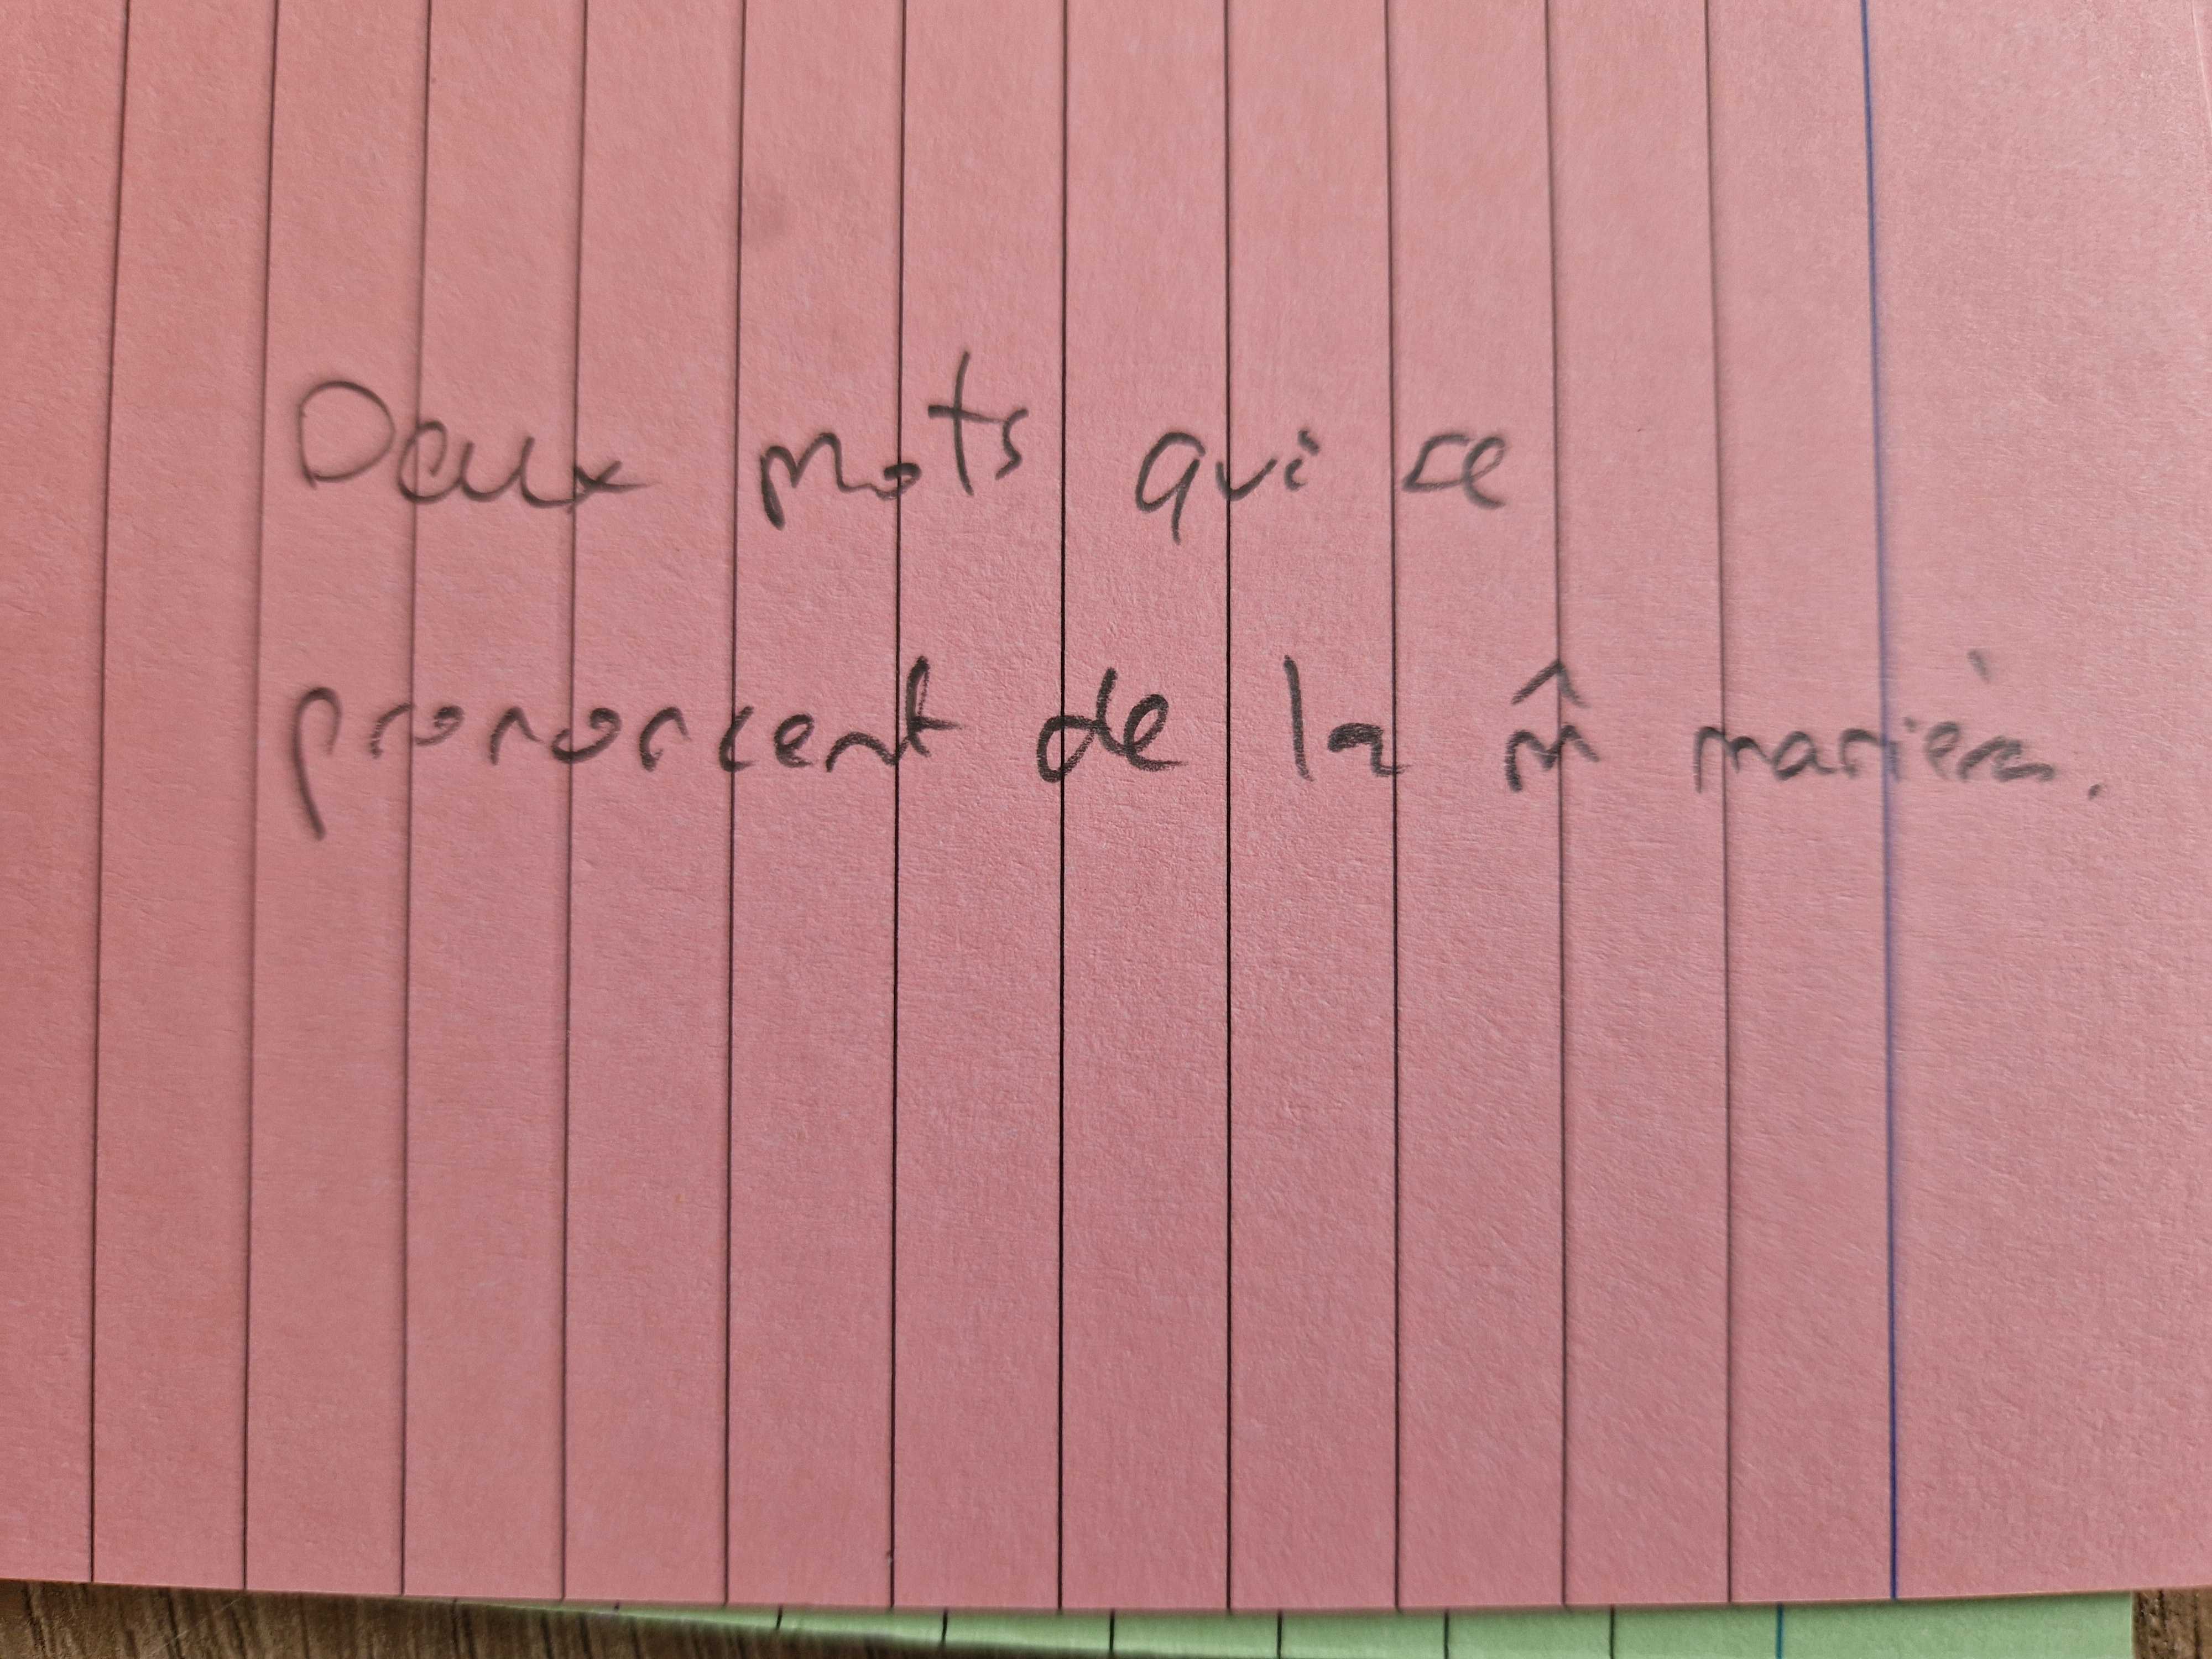 Deux mots qui se
prononcent de la m̂ manière.